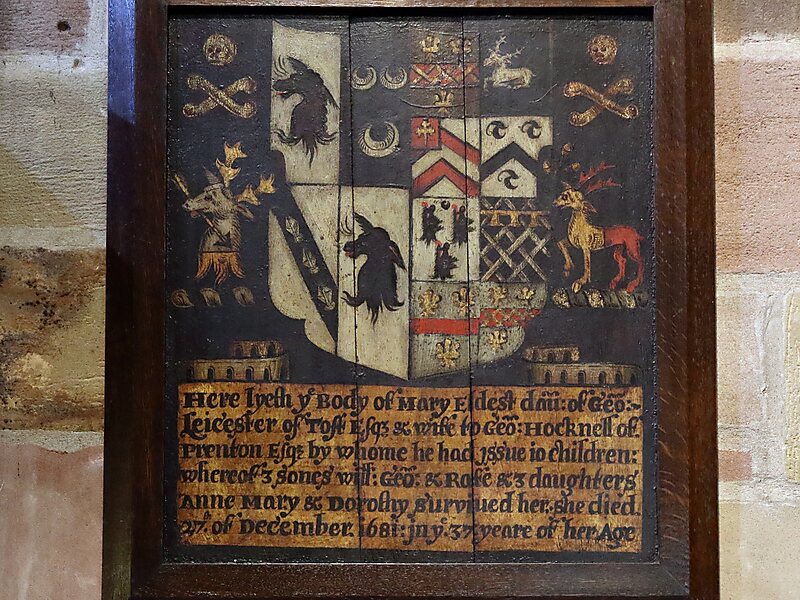 Here lyeth yᵉ Body of Mary Eldest dau: of Geo:~
Leicester of Toft Esqʳ & wife to Geo: Hocknell of
Prenton Esqʳ by whome he had issue 10 children:
whereof 3 sones will: Geo: & Rafe & 3 daughters
Anne Mary & Dorothy survived her. she died.
27ᵗʰ of December. 1681: jn yᵉ. 37 yeare of her Age